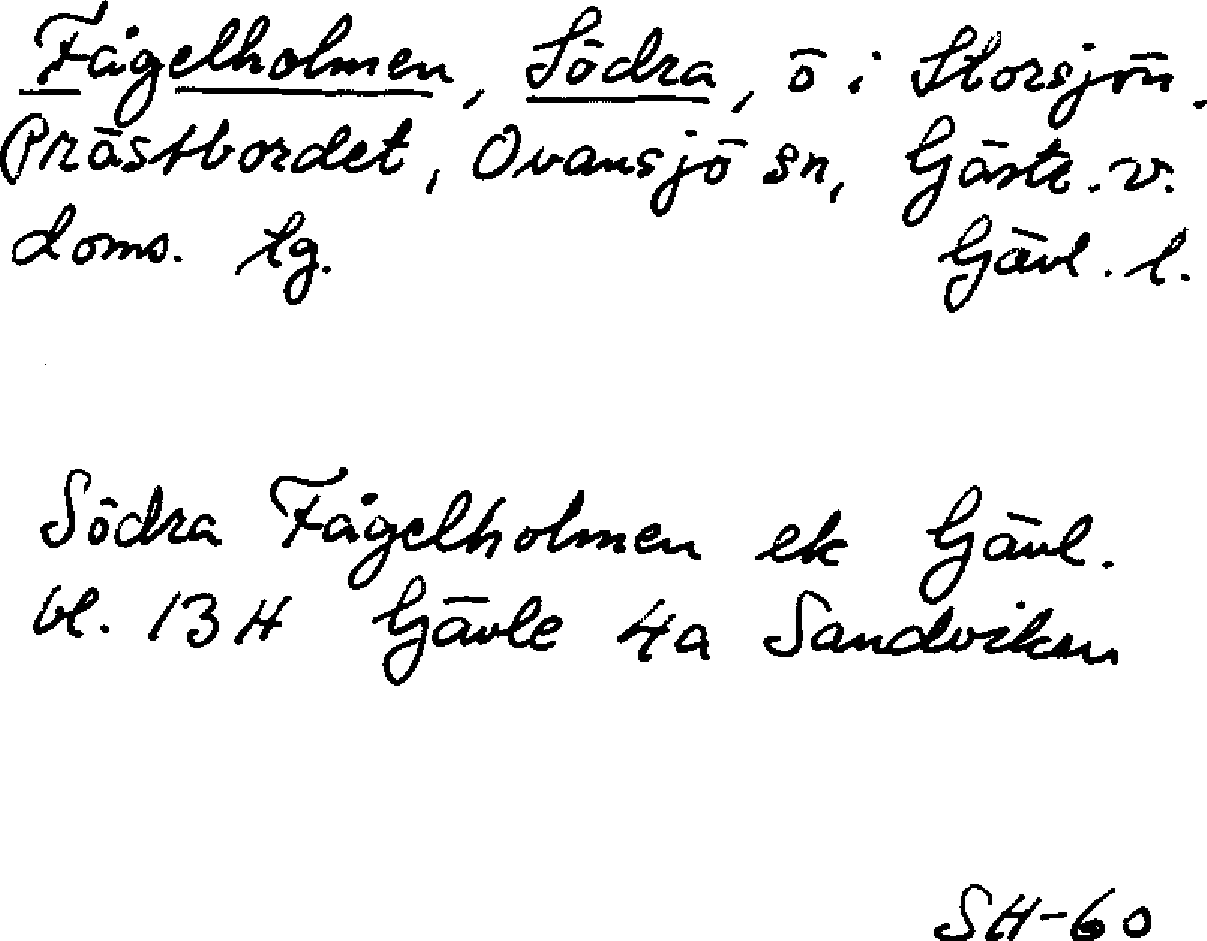 Fågelholmen, Södra, ö i Storsjön.
Prästbordet, Ovansjö sn, Gästr. v.
doms. tg. Gävl. l.
Södra Fågelholmen ek Gävl.
bl. 13 H Gävle 4a Sandviken
SH-60